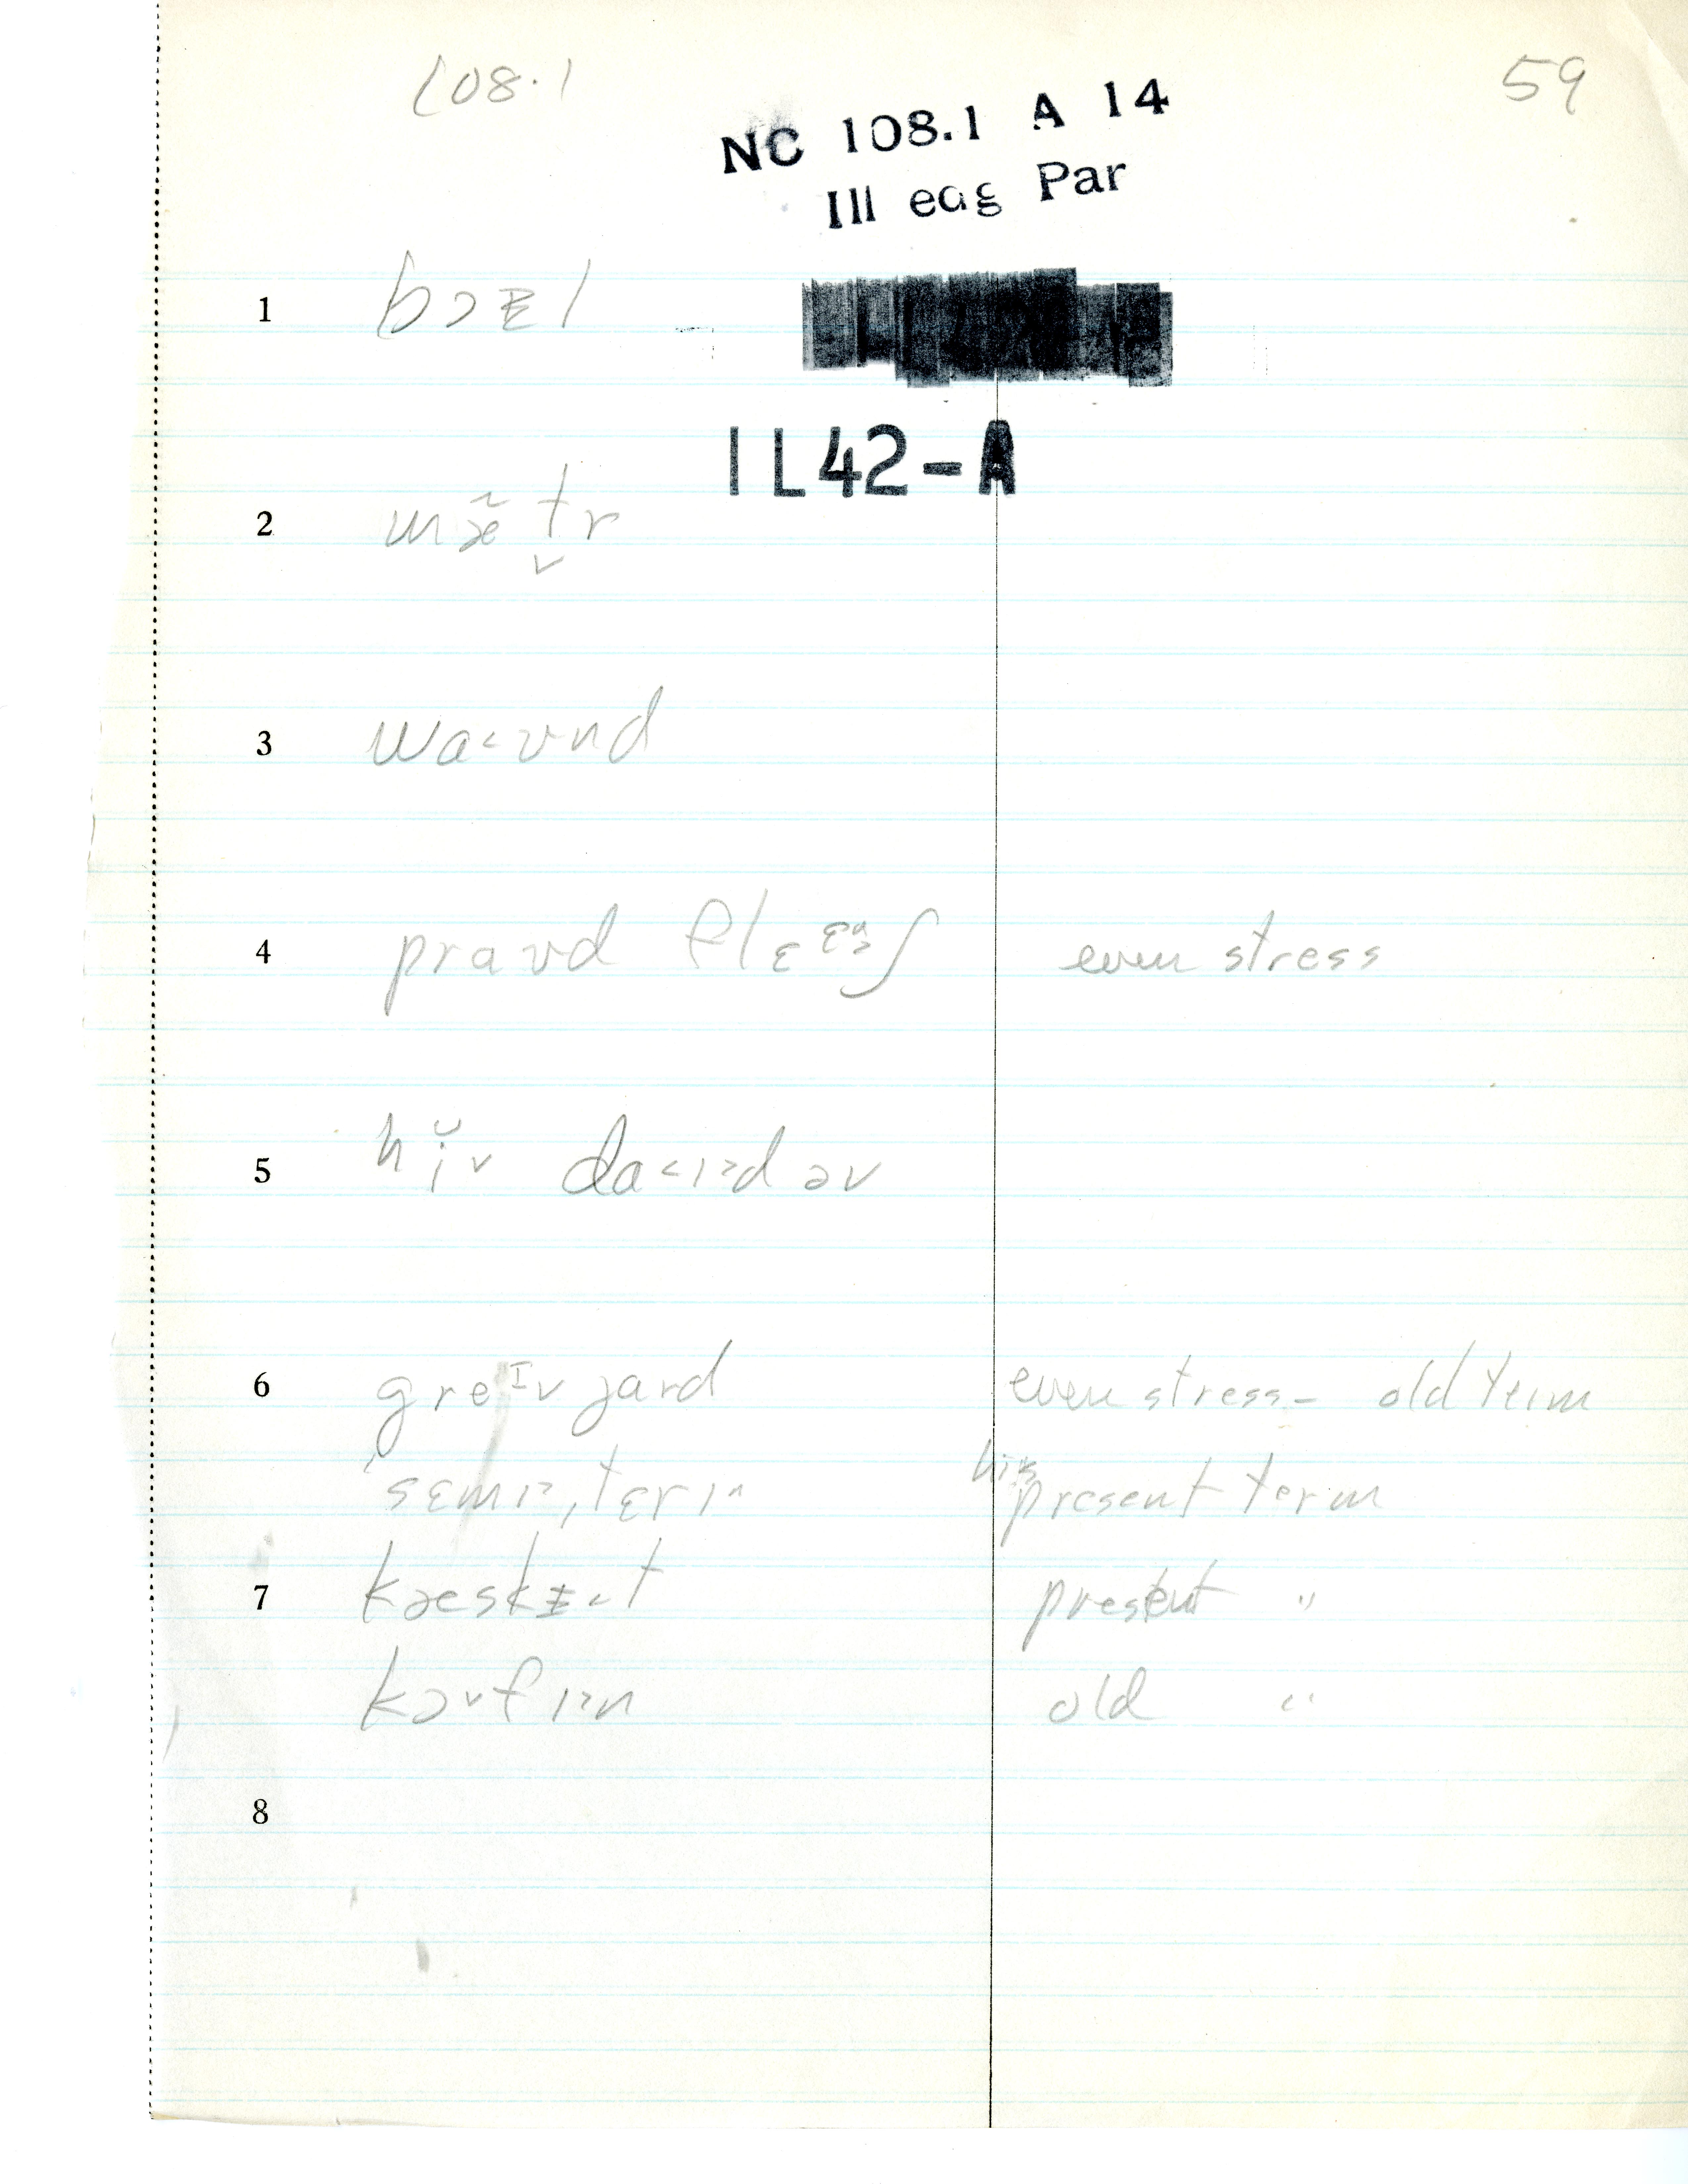 108.1
59
NC 108.1 A 14
Ill eag Par
1 bɔᵻl
IL42-A
2
3 wa<ʊnd
4 praʊd flɛɛᵊʃ even stress
5
6 greɪv jard even stress - old term
ˈsɛmɪ>ˌtɛrɪ^ his present term
7 kæskᵻ<t present "
kɔvfɪ>n old "
8